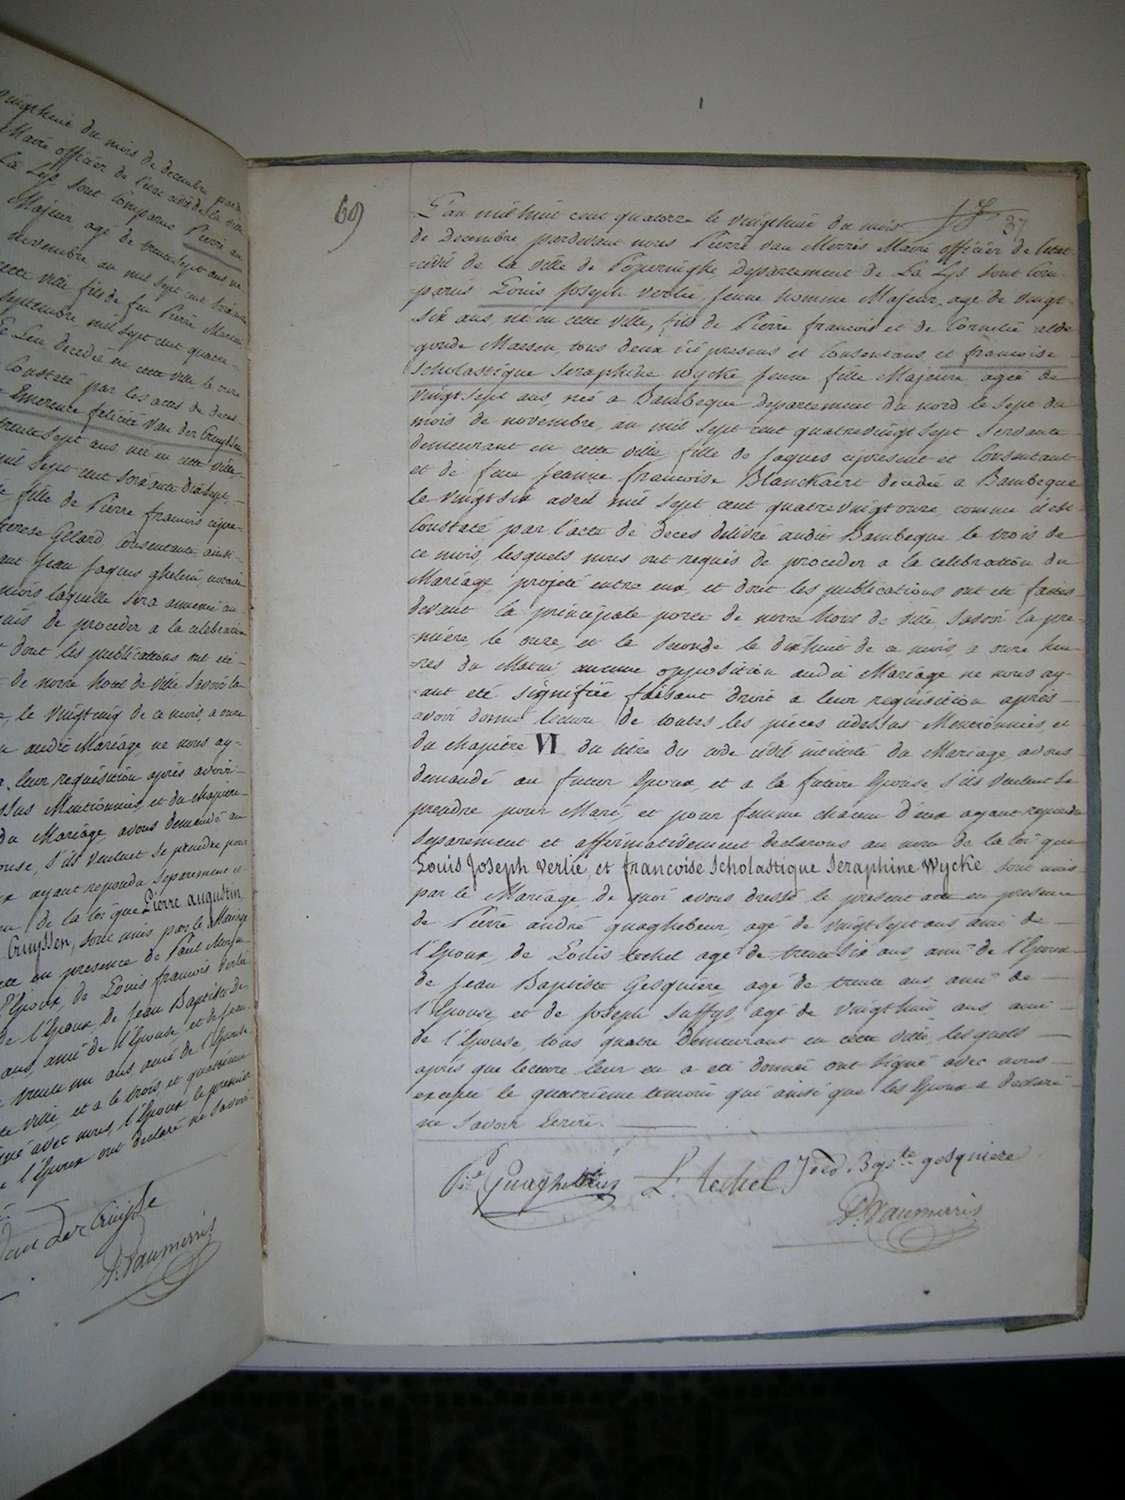 Vingthuit du mois de decembre pard
Maire officier de l'etat civil de la ville
La Lys sont Comparus Pierre au
Majeur agé de trente sept ans né
novembre an mil sept cent soixante
cette ville fils de feu Pierre
septembre mil sept cent quatre
Leu decedée en cette ville le onze
Constaté par les actes de deces
Emerence felicité Van der Cruyssen
trente sept ans née en cette ville
mil Sept cent soixante dixsept
fille de Pierre francois cipre
therese Gelard Consentante ainsi
ant Jean Jaques ghelein, notaire
mois laquelle sera annexé au
quis de proceder a la celebration
dont les publications ont eté
de notre hotel de ville Savoir la
le vingtcinq de ce mois, a onze
audit Mariage ne nous ay-
a leur requisition après avoir
ssus Mentionnées et du chapitre
du Mariage avons demandé au
ouse, s'ils veulent se prendre pour
ux ayant repondu separement et
de la loi que Pierre augustin
Cruyssen, sont unis par le Mariage
en presence de Paul
l'Epoux de Louis francois
de l'Epoux, de Jean Baptiste de
ans, ami de l'Epouse, et de Jean
trente un ans, ami de l'Epouse
ville et a le trois et quatrieme
gné avec nous, l'Epoux le premier
l'Epoux ont declaré ne savoir
Van der Cruysse
P. Vanmerris
69
37
L'an mil huit cent quatorze le vingthuit du mois
de Decembre pardevant nous Pierre Van Merris Maire officier de l'etat
civil de la ville de Poperinghe Departement de La Lys sont Com-
parus Louis Joseph Verlié, Jeune homme Majeur, agé de vingt-
six ans, né en cette ville, fils de Pierre francois et de Cornelie alde
gonde Maesen, tous deux ici presens et Consentans et francoise
Scholastique Seraphine Wycke Jeune fille Majeure agée de
vingt sept ans née a Bambeque departement du nord le sept du
mois de novembre, an mil sept cent quatrevingt sept Servante
demeurant en cette ville fille de Jaques cipresent et Consentant
et de feue Jeanne francoise Blanckaert decedée a Bambeque
le vingt six avril mil sept cent quatrevingt onze, comme il est
Constaté par l'acte de deces delivré audit Bambeque le trois de
ce mois, lesquels nous ont requis de proceder a la celebration du
Mariage projeté entre eux, et dont les publications ont été faites
devant la principale porte de notre hotel de ville savoir la pre-
miere le onze, et la seconde le dixhuit de ce mois, a onze heu-
res du Matin aucune opposition audit Mariage ne nous ay-
ant eté signifiée faisant droit a leur requisition après
avoir donné lecture de toutes les pièces cidessus Mentionnées, et
du chapitre VI du titre du code civil intitulé du Mariage, avons
demandé au futur Epoux, et a la future Epouse s'ils veulent se
prendre pour Mari et pour femme chacun d'eux ayant repondu
separement et affirmativement declarons au nom de la loi que
Louis Joseph Verlié, et francoise Scholastique Seraphine Wycke sont unis
par le Mariage, de quoi avons dressé le present acte en presence
de Pierre andré quaghebeur, agé de vingtsept ans ami de
l'Epoux, de Louis techel agé de trente six ans, ami de l'Epoux
de Jean Baptiste Gesquiere, agé de trente ans, ami de
l'Epouse, et de Joseph Suffys, agé de vingthuit ans, ami
de l'Epouse, tous quatre demeurant en cette ville, lesquels
après que lecture leur en a été donnée ont signé avec nous
excepté le quatrieme temoin qui ainsi que les Epoux a declaré
ne savoir Ecrire.
Pre Quaghebeur L. techel Joed. Bapte gesquiere
P. Vanmerris